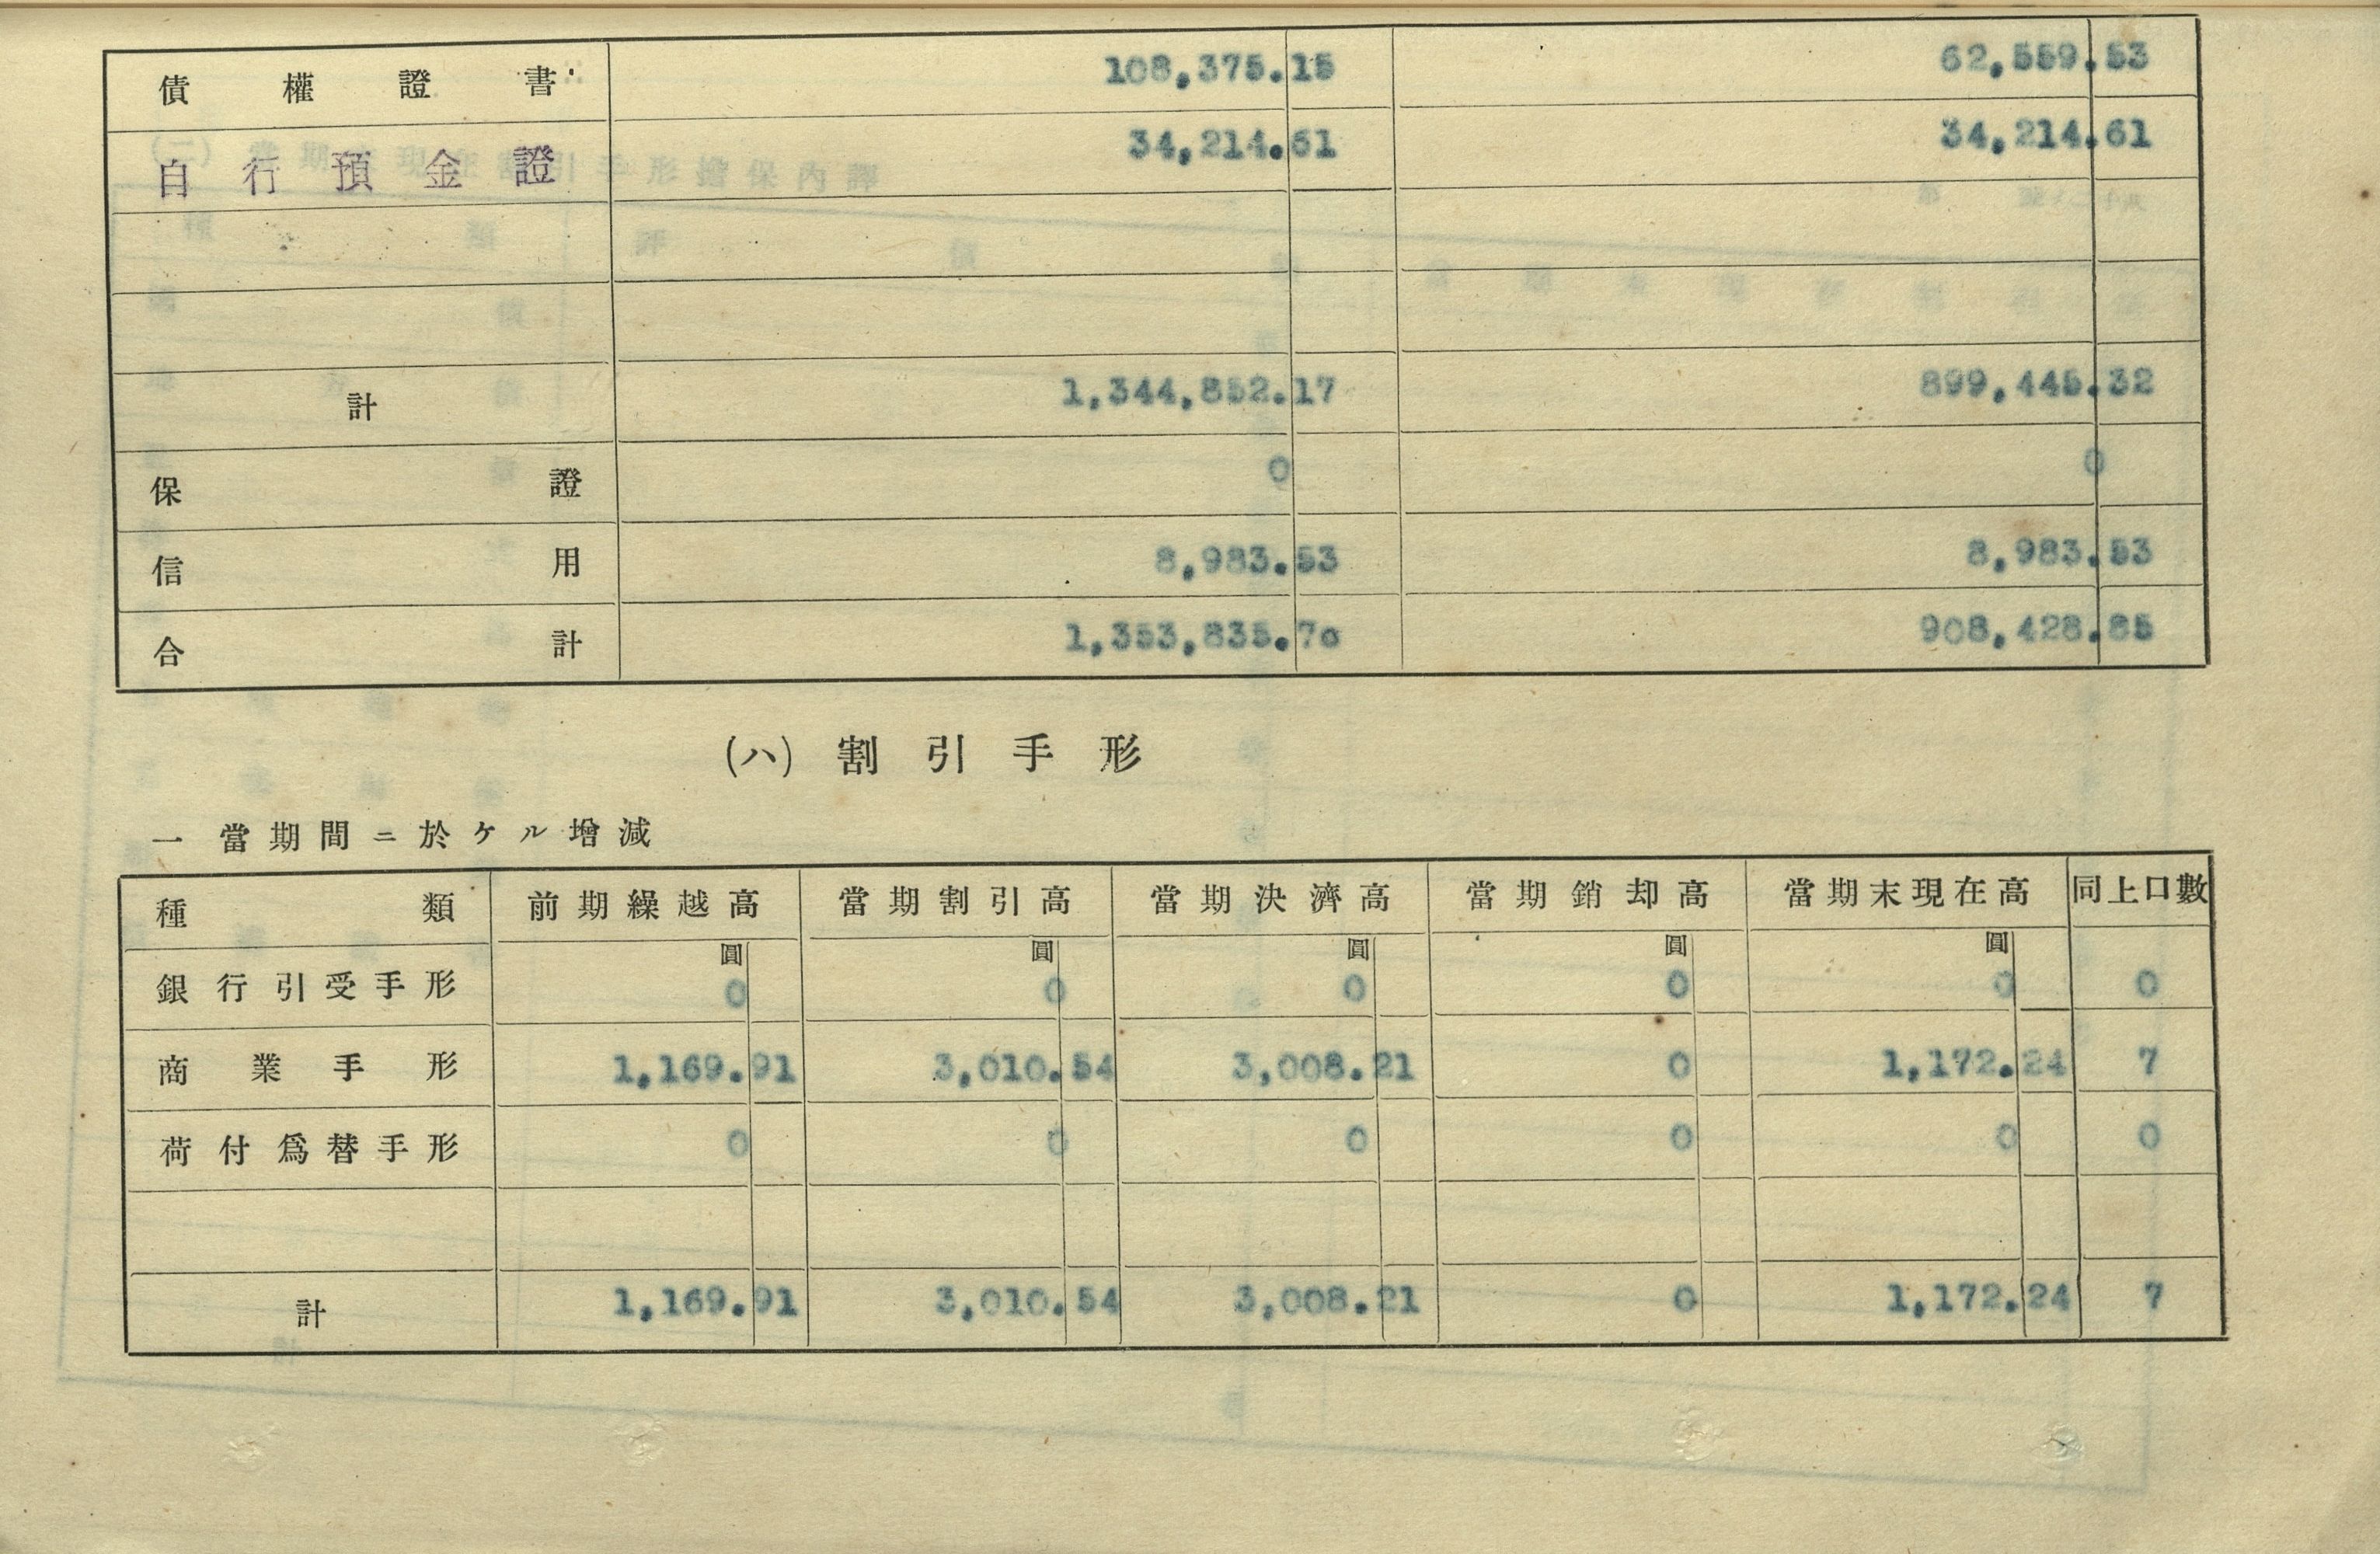 債權證書 108,375.15 62,559.53
自行預金證 34,214.61 34,214.61
計 1,344,852.17 899,445.32
保證 0 0
信用 8,983.53 8,983.53
合計 1,353,835.70 908,428.85
(ハ) 割引手形
一 當期間ニ於ケル增減
種類 前期繰越高 當期割引高 當期決濟高 當期銷却高 當期末現在高 同上口數
圓 圓 圓 圓 圓
銀行引受手形 0 0 0 0 0 0
商業手形 1,169.91 3,010.54 3,008.21 0 1,172.24 7
荷付爲替手形 0 0 0 0 0 0
計 1,169.91 3,010.54 3,008.21 0 1,172.24 7